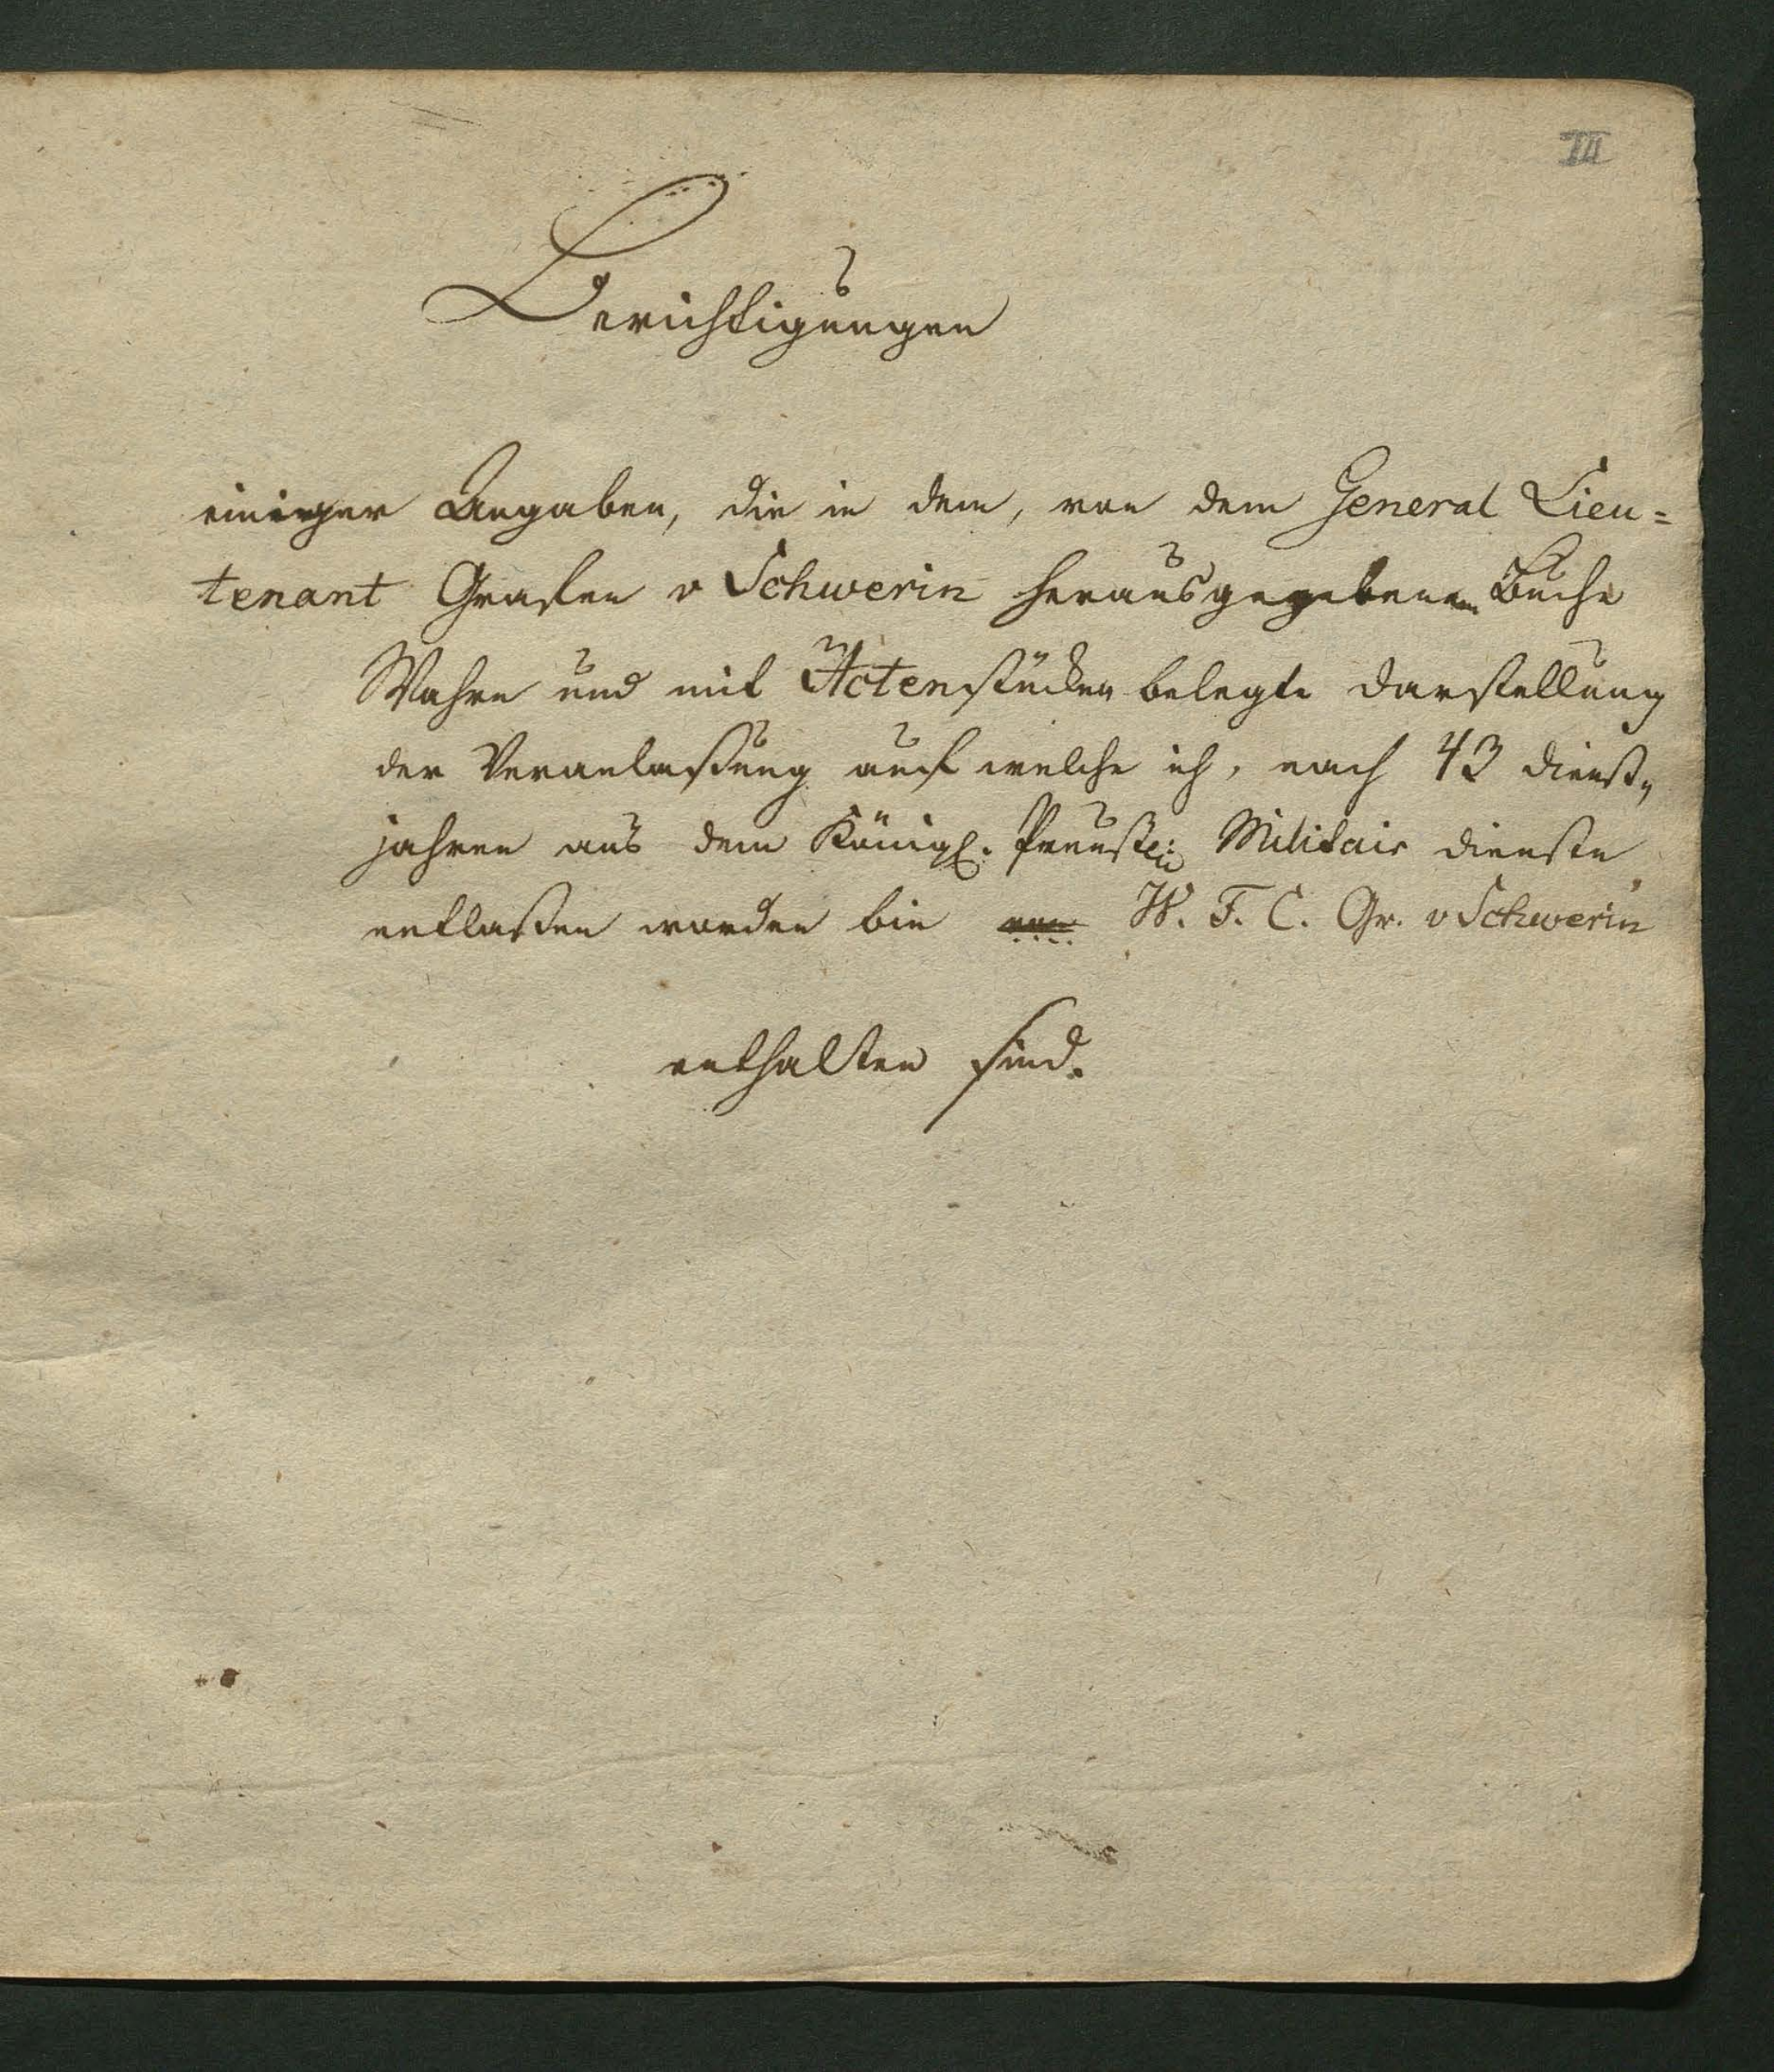 III
Berichtigungen
einiger Angaben, die in dem, von dem General Lieu=
tenant Grafen v Schwerin herausgegebenen Buche
Wahre und mit Actenstücken belegte Darstellung
der Veranlaßung auf welche ich, nach 43 Dienst„
jahren aus dem Königl. Preußen Militair Dienste
entlaßen worden bin von W. F. C. Gr. v Schwerin
enthalten sind.